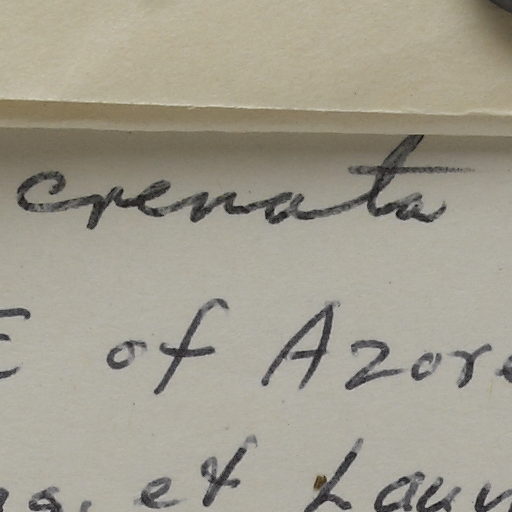 crenata
E of Azore
et Laur